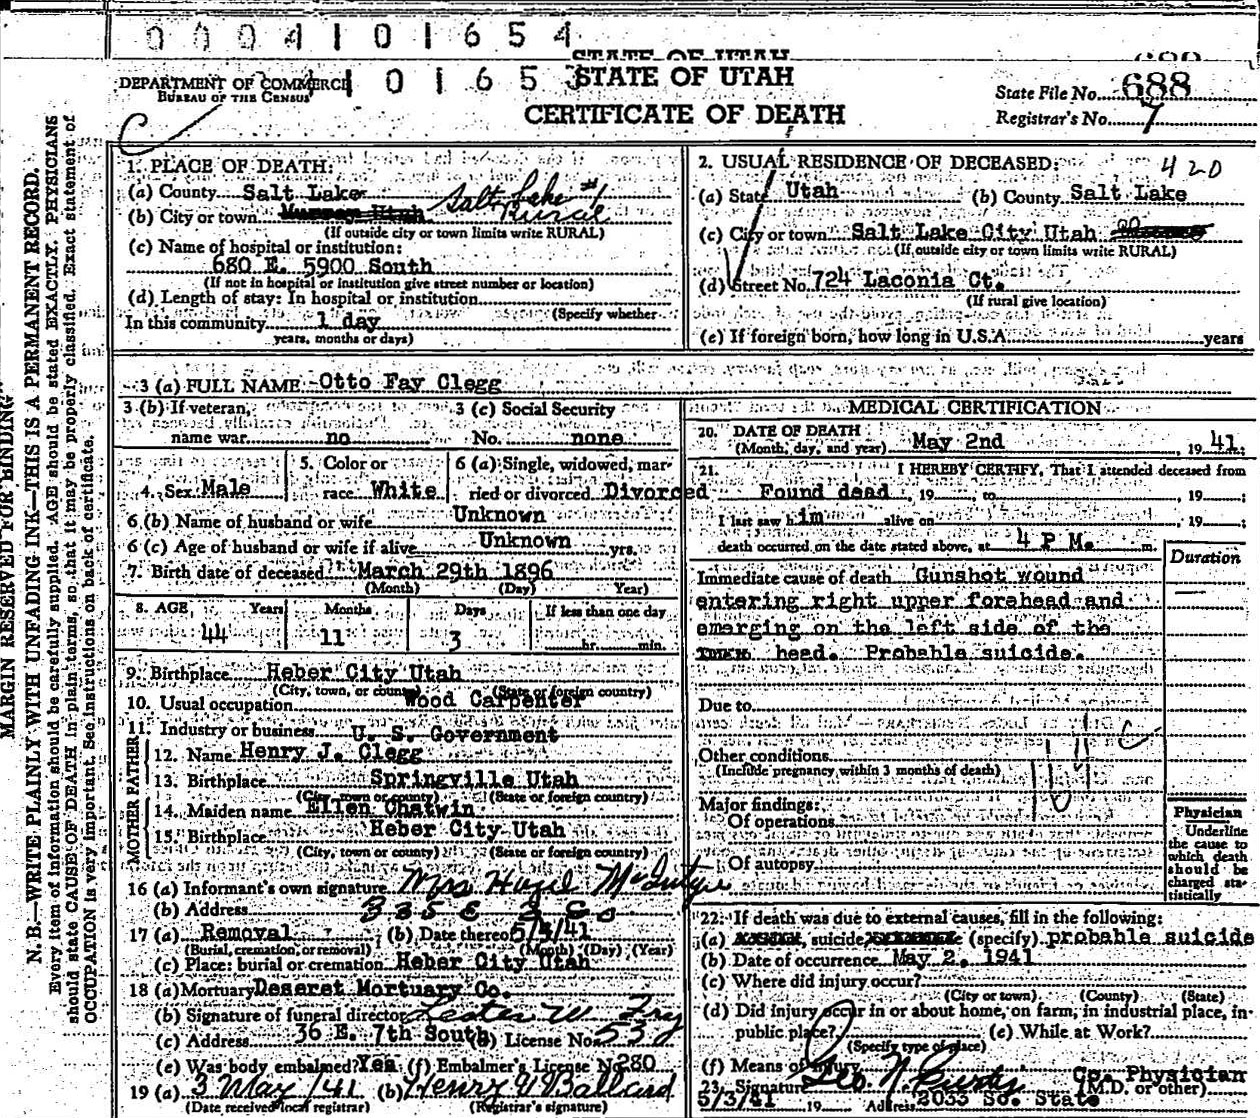 0004101654
STATE OF UTAH
DEPARTMENT OF COMMERCE
BUREAU OF THE CENSUS
101653
STATE OF UTAH
CERTIFICATE OF DEATH
State File No. 688
Registrar's No. 7
C
MARGIN RESERVED FOR BINDING
N. B.—WRITE PLAINLY WITH UNFADING INK—THIS IS A PERMANENT RECORD.
Every item of information should be carefully supplied. AGE should be stated EXACTLY. PHYSICIANS
should state CAUSE OF DEATH in plain terms, so that it may be properly classified. Exact statement of
OCCUPATION is very important. See instructions on back of certificate.
1. PLACE OF DEATH:
(a) County Salt Lake
(b) City or town Murray Utah Salt Lake #1 Rural
(If outside city or town limits write RURAL)
(c) Name of hospital or institution:
680 E. 5900 South
(If not in hospital or institution give street number or location)
(d) Length of stay: In hospital or institution
(Specify whether
In this community 1 day
years, months or days)
2. USUAL RESIDENCE OF DECEASED: 420
(a) State Utah (b) County Salt Lake
(c) City or town Salt Lake City Utah
(If outside city or town limits write RURAL)
(d) Street No. 724 Laconia Ct.
(If rural give location)
(e) If foreign born, how long in U.S.A. years
3 (a) FULL NAME Otto Fay Clegg
3 (b) If veteran, name war no
3 (c) Social Security No. none
4. Sex Male
5. Color or race White
6 (a) Single, widowed, married or divorced Divorced
6 (b) Name of husband or wife Unknown
6 (c) Age of husband or wife if alive Unknown yrs.
7. Birth date of deceased March 29th 1896
(Month) (Day) Year)
8. AGE Years Months Days If less than one day
44 11 3 hr. min.
9. Birthplace Heber City Utah
(City, town, or county) (State or foreign country)
10. Usual occupation Wood Carpenter
11. Industry or business U. S. Government
FATHER
12. Name Henry J. Clegg
13. Birthplace Springville Utah
(City, town or county) (State or foreign country)
MOTHER
14. Maiden name Ellen Chatwin
15. Birthplace Heber City Utah
(City, town or county) (State or foreign country)
16 (a) Informant's own signature Mrs Hazel McIntyre
(b) Address 335 E
17 (a) Removal (b) Date thereof 5/3/41
(Burial, cremation, or removal) (Month) (Day) (Year)
(c) Place: burial or cremation Heber City Utah
18 (a) Mortuary Deseret Mortuary Co.
(b) Signature of funeral director Lester W Fry
(c) Address 36 E. 7th South (d) License No. 530
(e) Was body embalmed? Yes (f) Embalmer's License N 280
19 (a) 3 May/41 (b) Henry V Ballard
(Date received local registrar) (Registrar's signature)
MEDICAL CERTIFICATION
20. DATE OF DEATH
(Month, day, and year) May 2nd, 19 41
21. I HEREBY CERTIFY, That I attended deceased from
Found dead, 19 to , 19 ;
I last saw him alive on , 19 ;
death occurred on the date stated above, at 4 P M. m.
Duration
Immediate cause of death Gunshot wound
entering right upper forehead and
emerging on the left side of the
head. Probable suicide.
Due to
Other conditions
(Include pregnancy within 3 months of death)
Major findings:
Of operations
Of autopsy
Physician
Underline
the cause to
which death
should be
charged sta-
tistically
22. If death was due to external causes, fill in the following:
(a) suicide, (specify) probable suicide
(b) Date of occurrence May 2, 1941
(c) Where did injury occur?
(City or town) (County) (State)
(d) Did injury occur in or about home, on farm, in industrial place, in-
public place? (e) While at Work?
(Specify type of place)
(f) Means of injury
Co. Physician
23. Signature Geo N Curtis (M.D. or other)
5/3/41 19 Address 2033 So. State